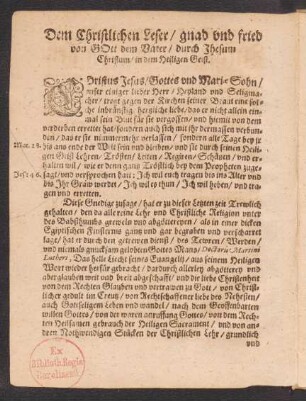 Dem Christlichen Leser / gnad vnd fried
von GOtt dem Vater / durch Jhesum
Christum / in dem Heiligen Geist.
CHristus Jesus / Gottes vnd Marie Sohn /
vnser einiger lieber Herr / Heyland vnd Seligma-
cher / tregt gegen der Kirchen seiner Braut eine sol-
che inbrünstige hertzliche liebe / das er nicht allein ein-
mal sein Blut für sie vergossen / vnd hiemit von dem
verderben errettet hat / sondern auch sich mit ihr dermassen verbun-
den / das er sie nimmermehr verlassen / sondern alle Tage bey je
Mat. 28. bis ans ende der Welt sein vnd bleiben / vnd sie durch seinen Heili-
gen Geist Lehren / Trösten / Leiten / Regiren / Schützen / vnd er-
halten wil / wie er denn gantz Tröstlich bey dem Propheten zuge-
Jesa. 46. sagt / vnd versprochen hat: Ich wil euch tragen bis ins Alter vnd
bis Ihr Graw werdet / Ich wil es thun / Ich wil heben / vnd tra-
gen vnd erretten.
Diese Gnedige zusage / hat er zu dieser Letzten zeit Trewlich
gehalten / den da alle reine Lehr vnd Christliche Religion vnter
des Babsthumbs greweln vnd abgöttereyen / als in einer dicken
Egiptischen Finsternis gantz vnd gar begraben vnd verscharret
lage / hat er durch den getrewen dienst / des Tewren / Werden /
vnd niemals gnugsam gelobten Gottes Mans / Doctoris Martini
Lutheri, Das helle Liecht seines Euangelij / aus seinem Heiligen
Wort wieder herfür gebracht / dadurch allerley abgötterey vnd
aberglauben weit vnd breit abgeschafft / vnd die liebe Christenheit
von dem Rechten Glauben vnd vertrawen zu Gott / von Christli-
cher gedult im Creutz / von Rechtschaffener liebe des Nehesten /
auch Gottseligen Leben vnd wandel / nach dem Geoffenbarten
willen Gottes / von der waren anruffung Gottes / von dem Rech-
ten Heilsamen gebrauch der Heiligen Sacrament / vnd von an-
dern Notwendigen Stücken der Christlichen Lehr / gründlich
vnd
Ex
Biblioth. Regia
Berolinensi